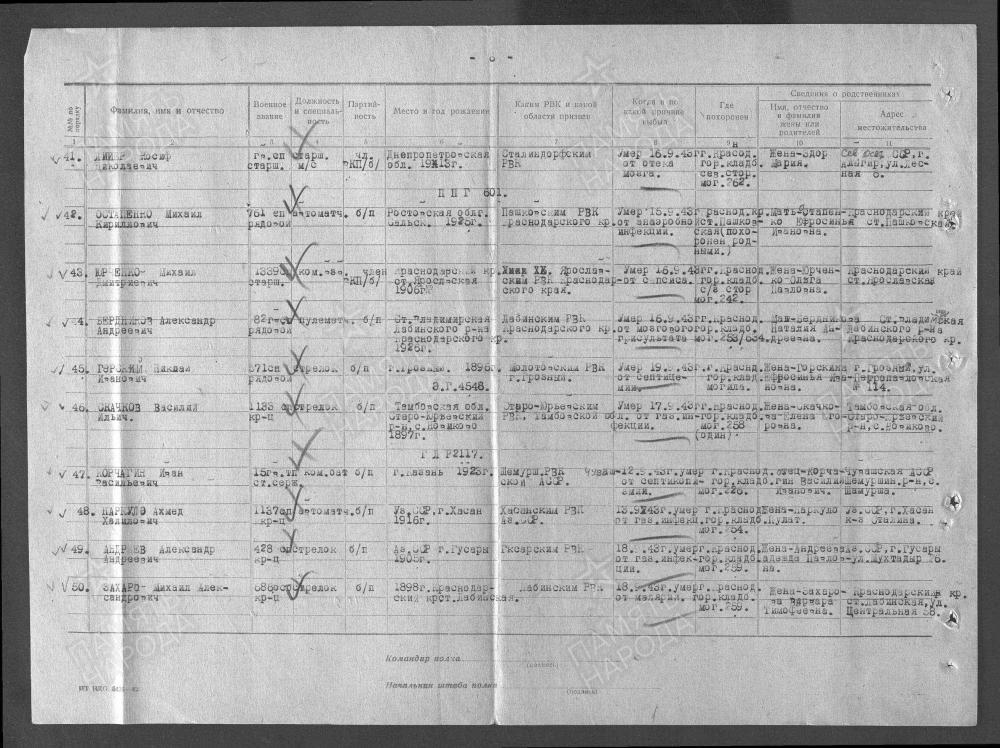 №№ по порядку
Фамилия, имя и отчество
Военное звание
Должность и специальность
Партийность
Место и год рождения
Каким РВК и какой области призван
Когда и по какой причине выбыл
Где похоронен
Сведения о родственниках
Имя, отчество и фамилия жены или родителей
Адрес местожительства
1 2 3 4 5 6 7 8 9 10 11
41. Иосиф Николаевич гв.сп старш. старш. м/с чл. ВКП/б/ Днепропетровская обл. 1918г. Сталиндорфским РВК Умер 16.9.43г от отека мозга. г.Красод. гор.кладб. сев.стор. мог.262. Жена- Мария. ССР,г. Алагир,ул.Лесная 6.
П П Г 601.
42. ОСТАПЕНКО Михаил Кириллович 761 сп рядовой автоматч. б/п Ростовская облг. Сальск. 1925г. Пашковским РВК Краснодарского кр. Умер 15.9.43г от анаэробной инфекции. раснод.кр. ст.Пашковская(похоронен родными.) Мать-Остапенко Ефросинья Ивановна. Краснодарский край ст.Пашковская.
43. ЮРЧЕНКО- Михаил Дмитриевич 1339сп старш. ком.взв. член ВКП/б/ Краснодарский кр. ст.Ярославская 1906г. Ярославским РВК Краснодарского края. Умер 16.9.43г от сепсиса. г.Краснод. гор.кладб. с/в стор мог.242. Жена-Юрченко Ольга Павловна. Краснодарский край ст.Ярославская
44. БЕРДНИКОВ Александр Андреевич 82г-сп рядовой пулеметч. б/п Ст.Владимирская Лабинского р-на Краснодарского кр. 1926г. Лабинским РВК Краснодарского кр. Умер 16.9.43г от мозгового г.Краснод. гор.кладб. мог.253/634. Бердникова Наталия Андреевна. Ст.Владимирская Лабинского р-на Краснодарского кр.
45. ГОРСКИЙ Николай Иванович 571сп рядовой стрелок б/п г.Грозный. 1896г. Молотовским РВК г.Грозный. Умер 19.9.43г. от септицемии. г.Краснд. гор.клад. могила. Жена-Горскина Ефросинья Ивановна. г.Грозный,ул. Петропавловская № 114.
Э.Г.4548.
46. СКАЧКОВ Василий Ильич. 1133 сп кр-ц стрелок б/п Тамбовская обл. Старо-Юрьевский р-н,с.Новиково 1897г. Старо-Юрьевским РВК Тамбовской обл. Умер 17.9.43г от газ.инфекции. г.Краснод. гор.кладб. мог.258 (один) Жена-Скачкова-Елена Егоровна. Тамбовская обл. Старо-Юрьевский р-н,с.Новиково.
Г Л Р2117.
47. КОРЧАГИН Иван Васильевич 15гв.тп ст.серж. ком.бат б/п г.Казань 1923г. Шемурш.РВК Чувашской АССР. 12.9.43г.умер от септикопиэмии. г.Краснод. гор.кладб. мог.226. отец-Корчагин Василий Иванович. Чувашская АССР Шемуршин.р-н,с. Шамурша.
48. НАРКУЛО Ахмед Халилович 1137сп кр-ц автоматч. б/п Уз.ССР,г.Хасан 1916г. Хасанским РВК Аз.ССР. 13.9.43г от газ.инфекц. г.Краснод гор.кладб. мог.254. Жена-Наркуло Кулат. Уз.ССР,г.Хасан к-з Сталина.
49. АНДРЕЕВ Александр Андреевич 428 сп кр-ц стрелок б/п Аз.ССР г.Гусары 1905г. Гксарским РВК 18.9.43г.умер от газ.инфекции. г.Краснод. гор.кладб. мог.259. Жена-Андреева Надежда Павловна. Аз.ССР,г.Гусары ул.Мухтадыр
50. ЗАХАРО- Михаил Александрович 686сп кр-ц стрелок б/п 1898г.Краснодарский крст.Лабинская. Лабинским РВК 18.9.43г.умер от малярии. г.Краснод. гор.кладб. мог.259. Жена-Захарова Варвара Тимофеевна. Краснодарский кр. ст.Лабинская,ул. Центральная 58.
Командир полка
(подпись)
Начальник штаба полка
(подпись)
ПАМЯТЬ НАРОДА